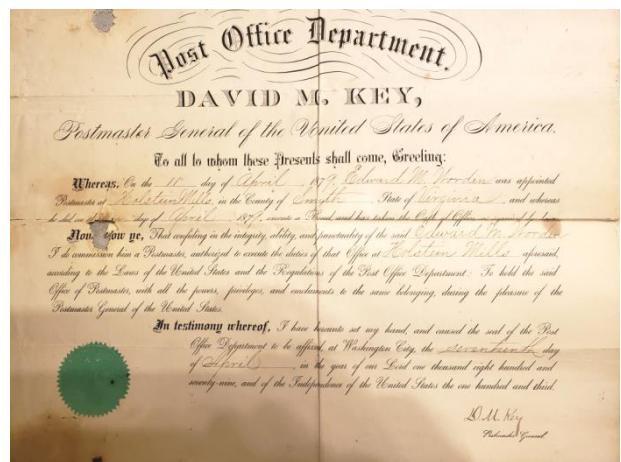 Post Office Department.
DAVID M. KEY,
Postmaster General of the United States of America.
To all to whom these Presents shall come, Greeting:
Whereas, On the day of April, 1879, Edward M. Worden was appointed
Postmaster at Holstein Mills, in the County of Smyth, State of Virginia, and whereas
he did on the day of April, 1879, execute a Bond, and has taken the Oath of Office as required by law:
Now know ye, That confiding in the integrity, ability, and punctuality of the said Edward M. Worden
I do commission him a Postmaster, authorized to execute the duties of that Office at Holstein Mills aforesaid,
according to the Laws of the United States and the Regulations of the Post Office Department: To hold the said
Office of Postmaster, with all the powers, privileges, and emoluments to the same belonging, during the pleasure of the
Postmaster General of the United States.
In testimony whereof, I have hereunto set my hand, and caused the seal of the Post
Office Department to be affixed, at Washington City, the seventeenth day
of April, in the year of our Lord one thousand eight hundred and
seventy-nine, and of the Independence of the United States the one hundred and third.
D. M. Key
Postmaster General